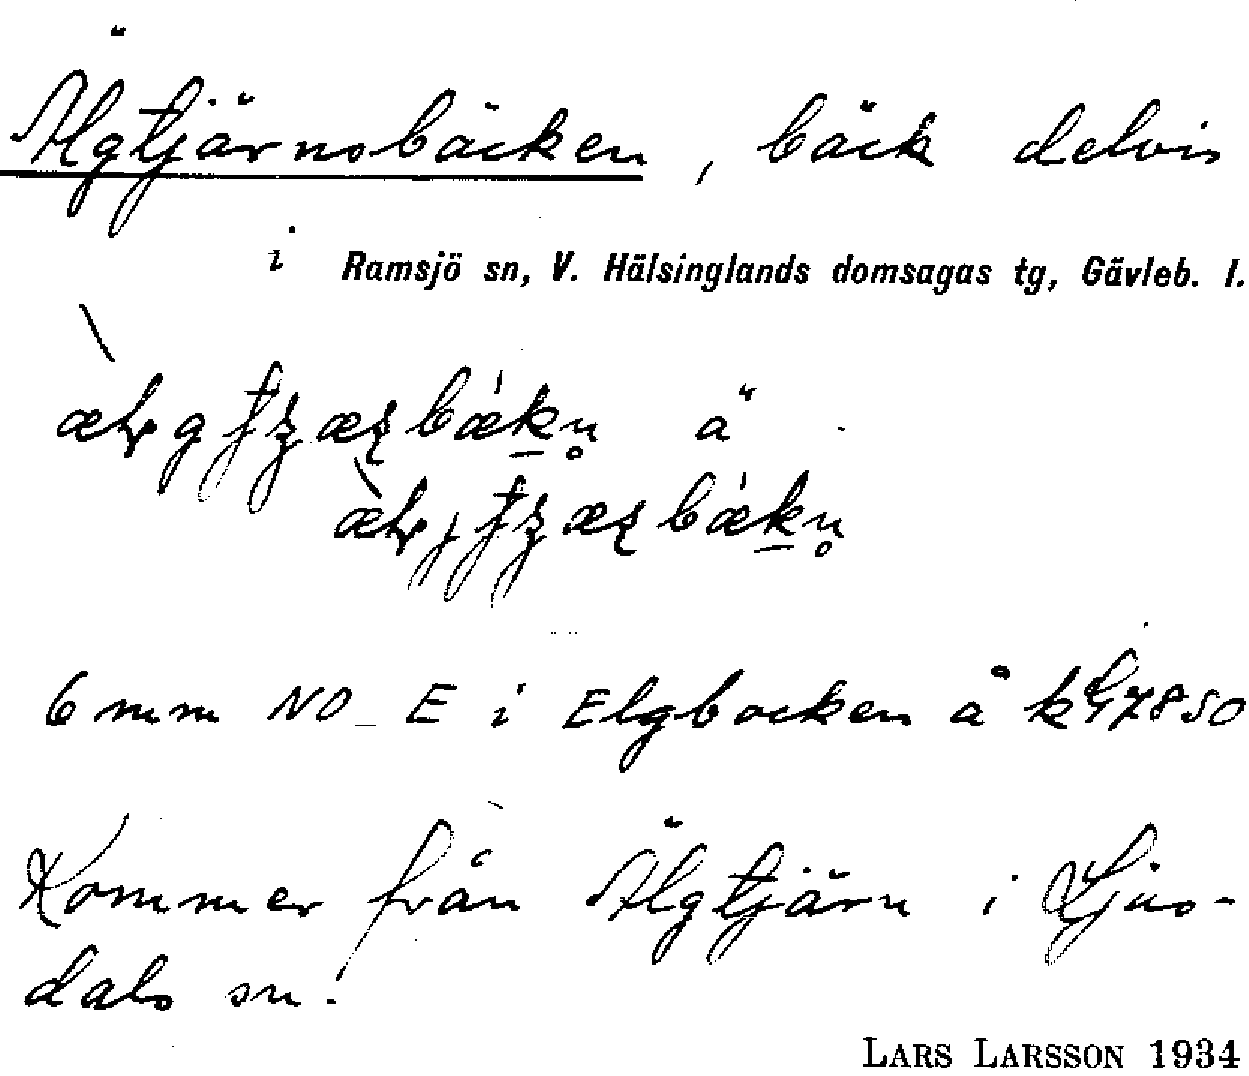 Älgtjärnsbäcken, bäck delvis
i Ramsjö sn, V. Hälsinglands domsagas tg, Gävleb. l.
ä
6 mm NO E i Elgbocken å
Kommer från Älgtjärn i Ljus-
dals sn.
LARS LARSSON 1934